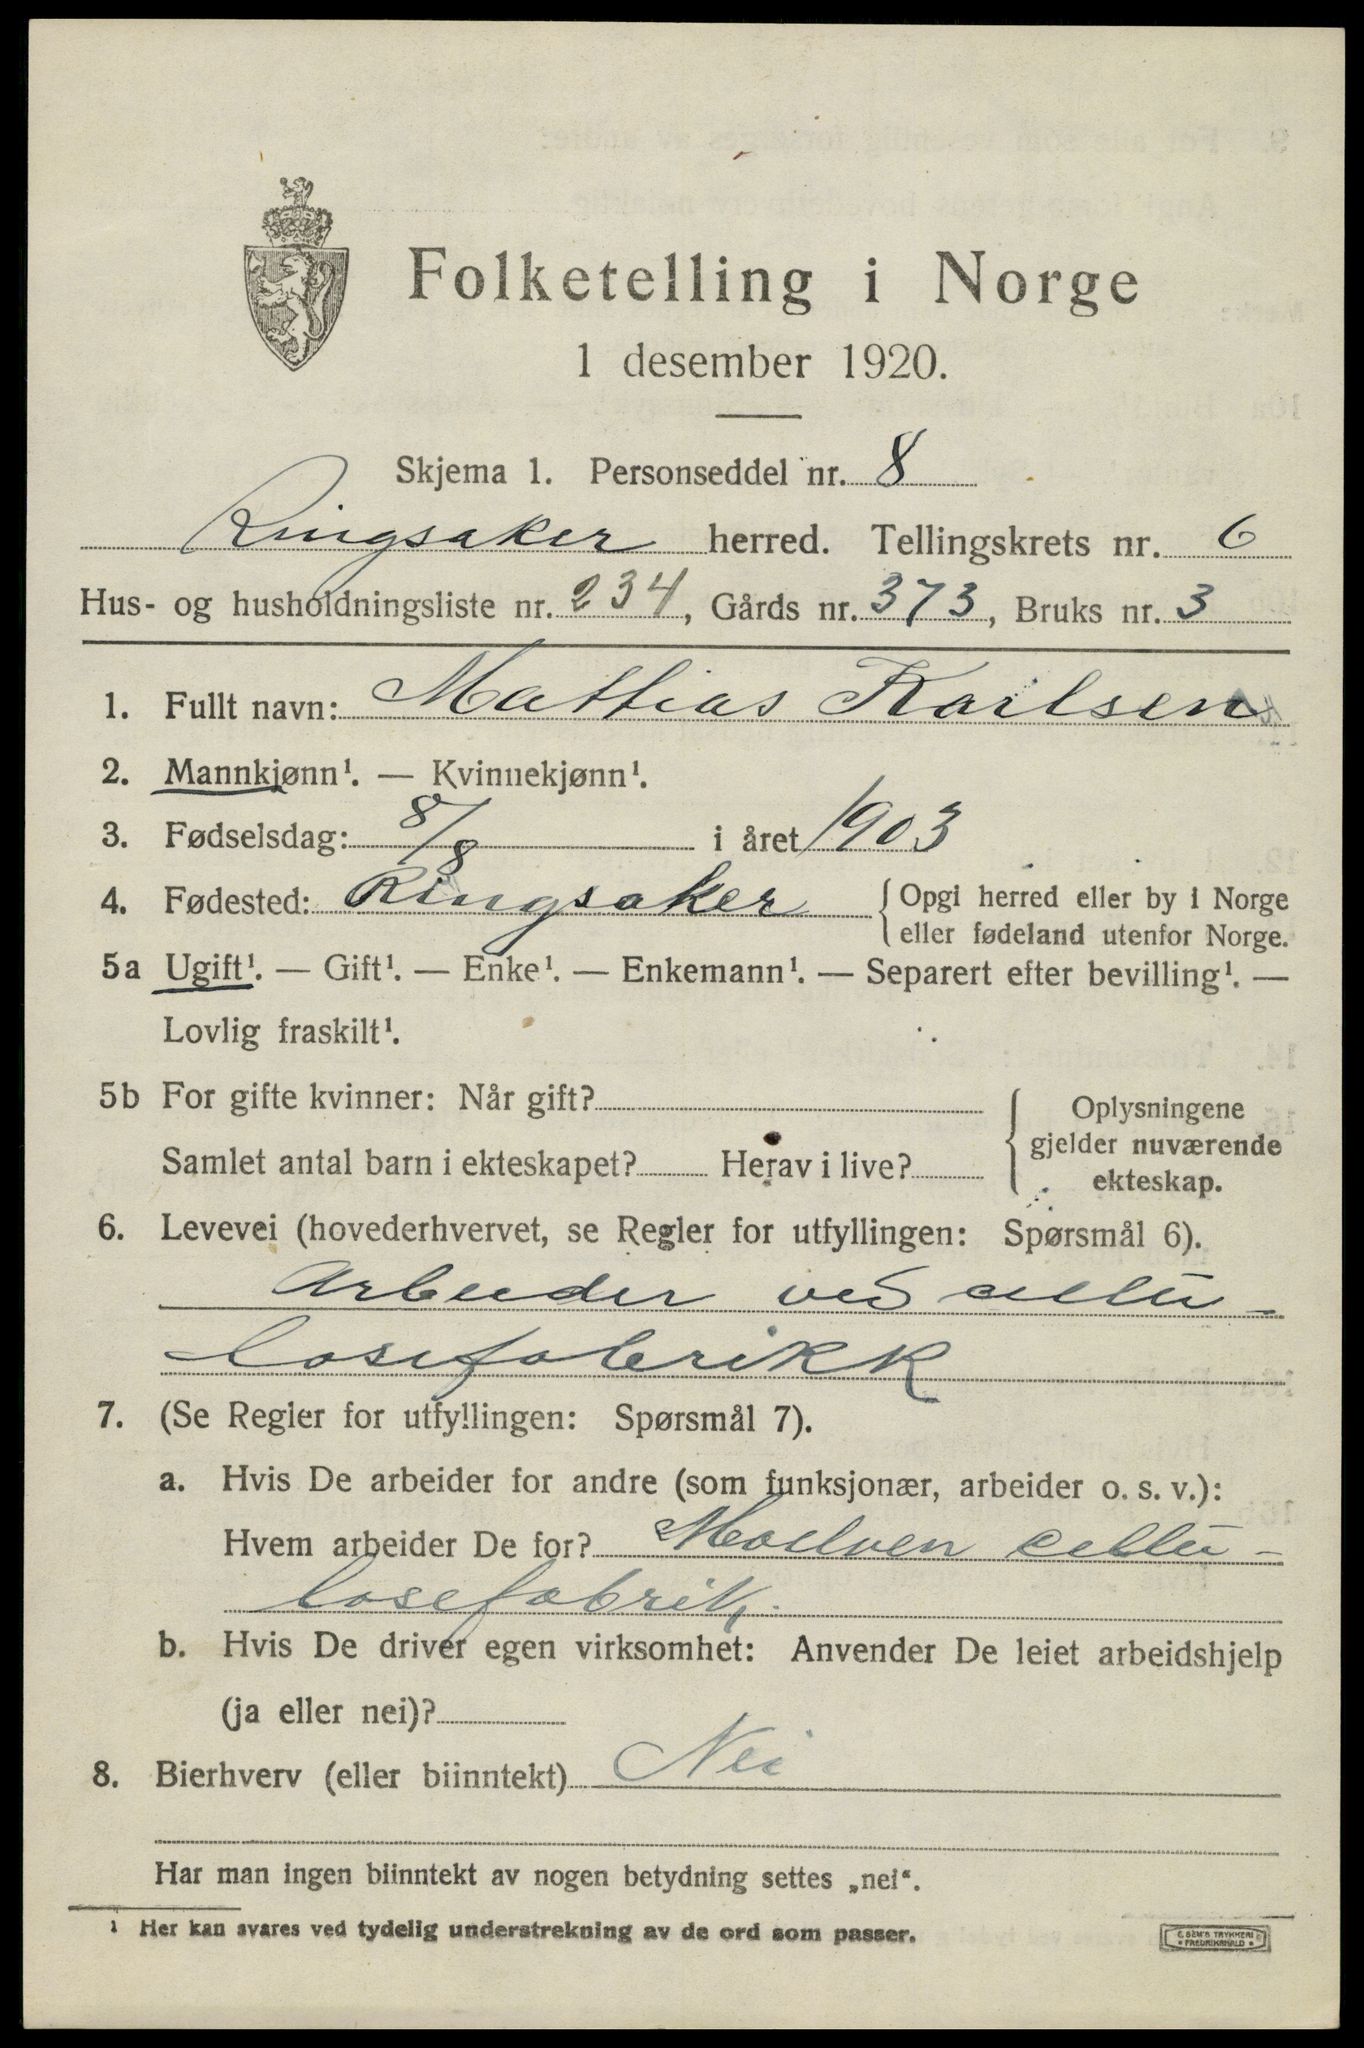 Folketelling i Norge
1 desember 1920.
Skjema 1. Personseddel nr. 8
Ringsaker herred. Tellingskrets nr. 6
Hus- og husholdningsliste nr. 234, Gårds nr. 373, Bruks nr. 3
1. Fullt navn: Mattias Karlsen
2. Mannkjønn¹. — Kvinnekjønn¹.
3. Fødselsdag: 8/8 i året 1903
4. Fødested: Ringsaker {Opgi herred eller by i Norge
eller fødeland utenfor Norge.
5a Ugift¹. — Gift¹. — Enke¹. — Enkemann¹. — Separert efter bevilling¹. —
Lovlig fraskilt¹.
5b For gifte kvinner: Når gift?
Samlet antal barn i ekteskapet? Herav i live?
{Oplysningene
gjelder nuværende
ekteskap.
6. Levevei (hovederhvervet, se Regler for utfyllingen: Spørsmål 6).
Arbeider ved cellu-
losefabrikk
7. (Se Regler for utfyllingen: Spørsmål 7).
a. Hvis De arbeider for andre (som funksjonær, arbeider o. s. v.):
Hvem arbeider De for? Moelven cellu-
losefabrik.
b. Hvis De driver egen virksomhet: Anvender De leiet arbeidshjelp
(ja eller nei)?
8. Bierhverv (eller biinntekt) Nei
Har man ingen biinntekt av nogen betydning settes „nei“.
¹ Her kan svares ved tydelig understrekning av de ord som passer.
TRYKKERI
FREDRIKSHALD